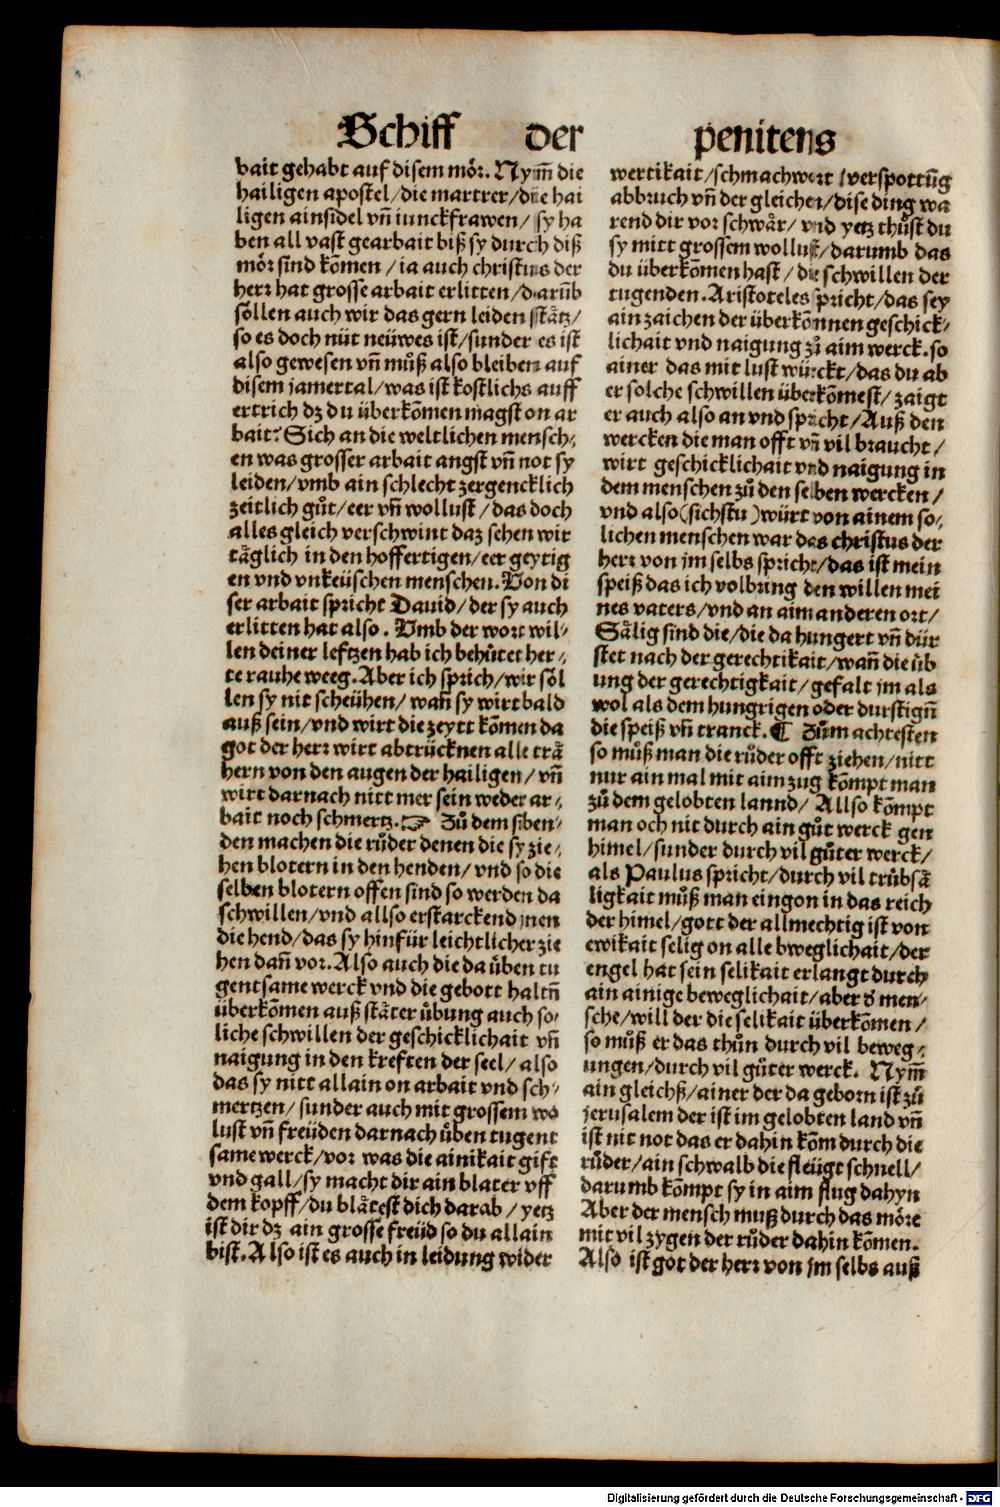 Schiff der penitens
bait gehabt auf disem möꝛ. Nym̃ die
hailigen apostel/die martrer/die hai
ligen ainsidel vn̄ iunckfrawen/ sy ha
ben all vast gearbait biß sy durch diß
möꝛ sind kōmen /ia auch christus der
herꝛ hat grosse arbait erlitten/darūb
söllen auch wir das gern leiden stätz/
so es doch nüt neüwes ist/sunder es ist
also gewesen vn̄ můß also bleiben auf
disem jamertal/was ist kostlichs auff
ertrich dz du überkōmen magst on ar
bait? Sich an die weltlichen mensch⸗
en was grosser arbait angst vn̄ not sy
leiden/vmb ain schlecht zergencklich
zeitlich gůt/eer vn̄ wollust /das doch
alles gleich verschwint daz sehen wir
täglich in den hoffertigen/eer geytig
en vnd vnkeüschen menschen. Von di
ser arbait spricht Dauid/der sy auch
erlitten hat also. Vmb der woꝛt wil⸗
len deiner leftzen hab ich behůtet her⸗
te rauhe weeg. Aber ich sprich/wir söl
len sy nit scheühen/ wan̄ sy wirt bald
auß sein/vnd wirt die zeytt kōmen da
got der herꝛ wirt abtrücknen alle trä
hern von den augen der hailigen/ vn̄
wirt darnach nitt mer sein weder ar⸗
bait noch schmertz. ☞ Zů dem siben⸗
den machen die růder denen die sy zie⸗
hen blotern in den henden/ vnd so die
selben blotern offen sind so werden da
schwillen/vnd allso erstarckend jnen
die hend/das sy hinfür leichtlicher zie
hen dan̄ voꝛ. Also auch die da ůben tu
gentsame werck vnd die gebott haltn̄
überkōmen auß stäter ůbung auch so⸗
liche schwillen der geschicklichait vn̄
naigung in den kreften der seel/ also
das sy nitt allain on arbait vnd sch⸗
mertzen/ sunder auch mit grossem wo
lust vn̄ freüden darnach ůben tugent
same werck/voꝛ was die ainikait gift
vnd gall/sy macht dir ain blater vff
dem kopff/du blätest dich darab /yetz
ist dir dz ain grosse freüd so du allain
bist. Also ist es auch in leidung wider
wertikait/schmachwort/verspottūg
abbruch vn̄ der gleichen/dise ding wa
rend dir voꝛ schwär/ vnd yetz thůst du
sy mitt grossem wollust/darumb das
du überkōmen hast/ die schwillen der
tugenden. Aristoteles spricht/das sey
ain zaichen der überkōmnen geschick⸗
lichait vnd naigung zů aim werck. so
ainer das mit lust würckt/das du ab
er solche schwillen überkōmest/ zaigt
er auch also an vnd spricht/Auß den
wercken die man offt vn̄ vil braucht/
wirt geschicklichait vnd naigung in
dem menschen zů den selben wercken/
vnd also(sichstu)würt von ainem so⸗
lichen menschen war das christus der
herꝛ von jm selbs spricht/das ist mein
speiß das ich volbring den willen mei
nes vaters/vnd an aim anderen oꝛt/
Sälig sind die/die da hungert vn̄ dür
stet nach der gerechtikait/wan̄ die üb
ung der gerechtigkait/gefalt jm als
wol als dem hungrigen oder durstign̄
die speiß vn̄ tranck. ¶ Zům achtesten
so můß man die růder offt ziehen/nitt
nur ain mal mit aim zug kōmpt man
zů dem gelobten lannd/ Allso kōmpt
man och nit durch ain gůt werck gen
himel/sunder durch vil gůter werck/
als Paulus spricht/durch vil trůbsä
ligkait můß man eingon in das reich
der himel/gott der allmechtig ist von
ewikait selig on alle bweglichait/der
engel hat sein selikait erlangt durch
ain ainige beweglichait/aber ď men⸗
sche/will der die selikait überkōmen/
so můß er das thůn durch vil beweg⸗
ungen/durch vil gůter werck. Nym̃
ain gleichß/ainer der da geborn ist zů
jerusalem der ist im gelobten land vn̄
ist nit not das er dahin kōm durch die
růder/ain schwalb die fleügt schnell/
darumb kōmpt sy in aim flug dahyn
Aber der mensch muß durch das möꝛe
mit vil zygen der růder dahin kōmen.
Also ist got der herꝛ von jm selbs auß
Digitalisierung gefördert durch die Deutsche Forschungsgemeinschaft - DFG